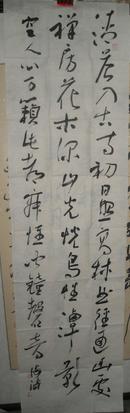 清晨入古寺初日照高林竹径通幽处
禅房花木深山光悦鸟性潭影
空人心万籟此都寂惟闻鐘磬音